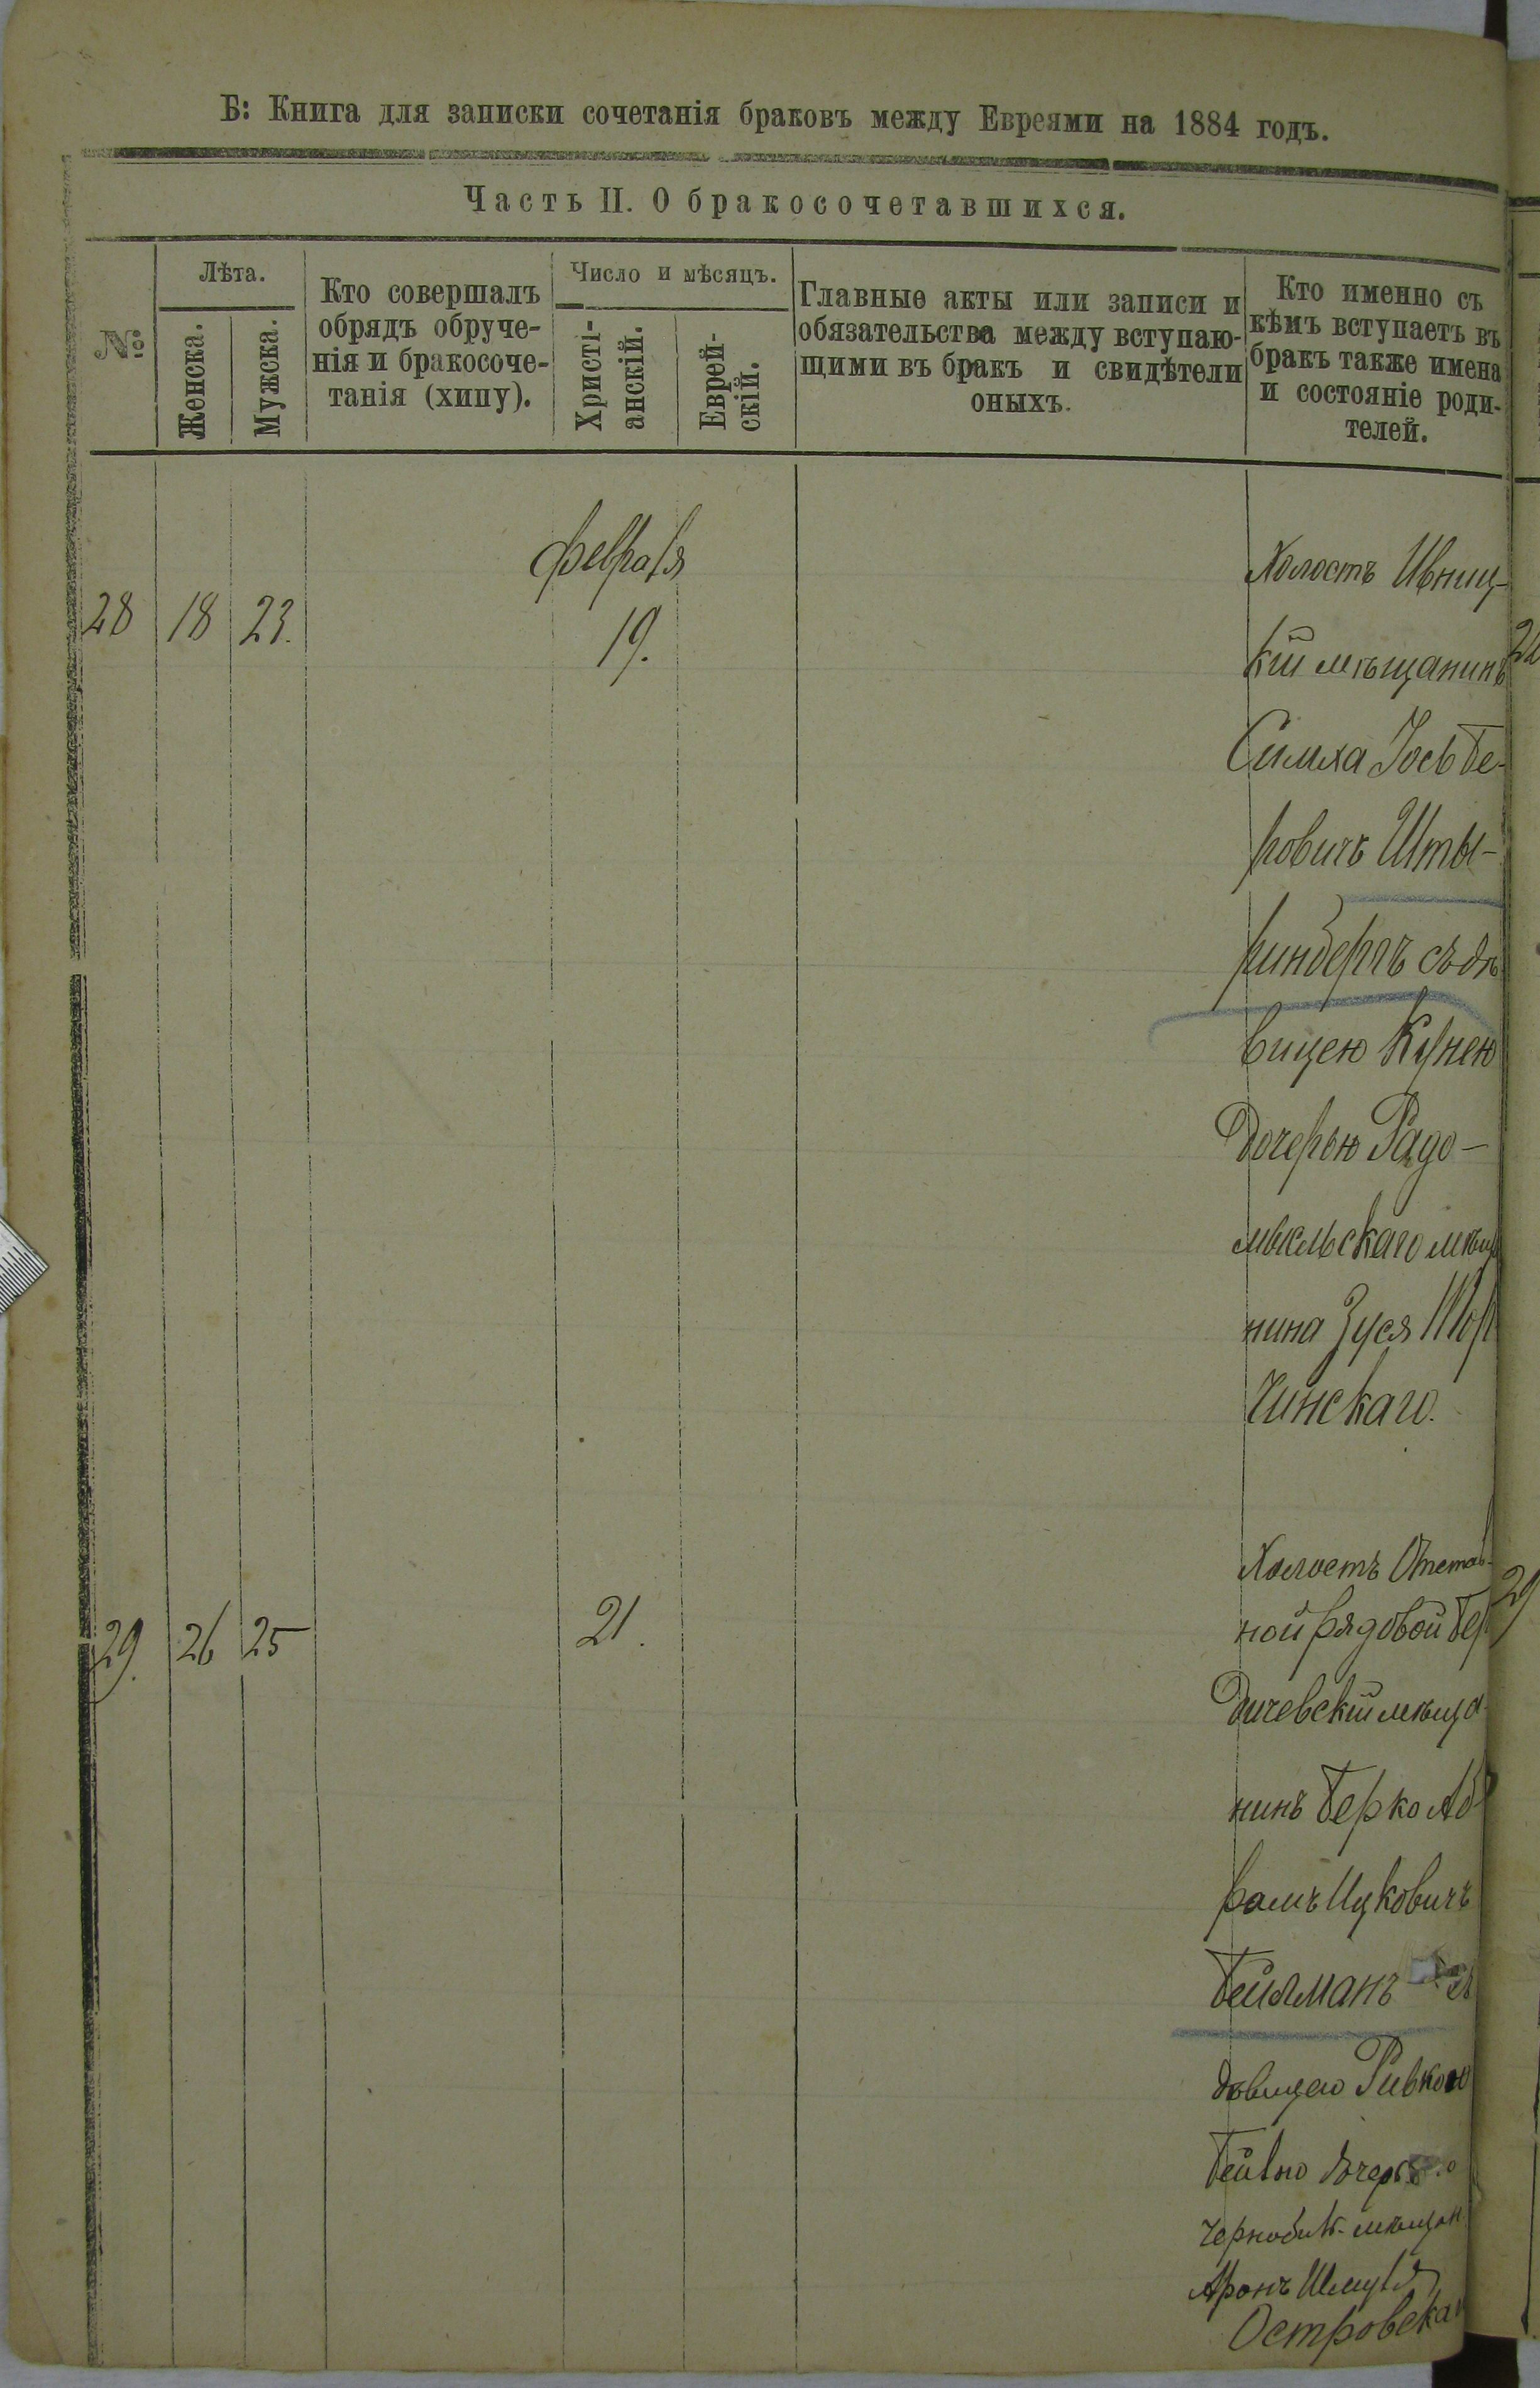 Б: Книга для записки сочетанія браковъ между Евреями на 1884 годъ.
Часть II. О бракосочетавшихся.
№
Лѣта.
Женска.
Мужска.
Кто совершалъ
обрядъ обруче-
нія и бракосоче-
танія (хипу).
Число и мѣсяцъ.
Христі-
анскій.
Еврей-
скій.
Главные акты или записи и
обязательства между вступаю-
щими въ бракъ и свидѣтели
оныхъ.
Кто именно съ
кѣмъ вступаетъ въ
бракъ также имена
и состояніе роди-
телей.
февраля
28 18 23. 19.
Холостъ Ивниц-
кій мѣщанинъ
Симха Іось Бе-
ровичъ Шты-
ринбергъ съ дѣ
вицею Кунею
Дочерью Радо-
мысльскаго мѣща
нина Зуся Тор
чинскаго.
29. 26 25 21.
Холостъ Отстав-
ной рядовой Бер
дичевскій мѣща-
нинъ Берко Аб-
рамъ Ицковичъ
Бейлманъ съ
дѣвицею Ривкою
Бейлю дочерью
Чернобил. мѣщан
Аронъ Шмуля
Островска